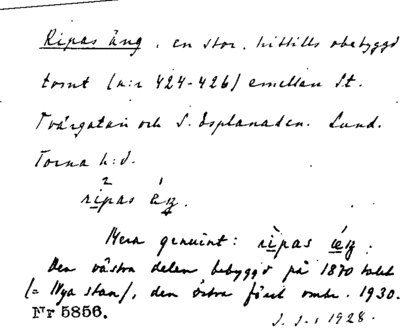 Ripas äng, en stor, hittills obebyggd
tomt (n:r 424-426) emellan St.
Tvärgatan och S. Esplanaden. Lund.
Torna h:d.
ripas äŋ.
Mera genuint: ripas æŋ.
Den västra delen bebyggd på 1870 talet
(= Nya stan), den östra först omkr. 1930.
Nr 5856.
J. S., 1928.